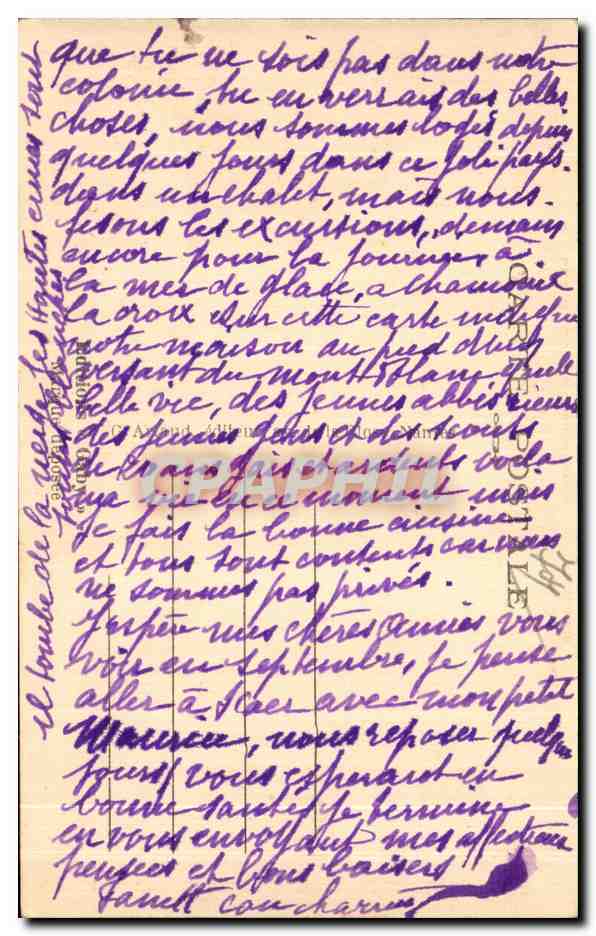 que tu ne sois pas dans notre
colonie, tu en verrais, des belles
choses, nous sommes logés depuis
quelques jours dans ce joli pays.
dans un chalet, mais nous.
fesons les excursions, demain
encore pour la journée, à
la mer de glace, a Chamonix
la croix sur cette carte indique
notre maison au pied du
versant du mont Blanc quelle
belle vie, des jeunes abbés rieurs
des jeunes gens et des scouts
voila
ma vie en ce moment mais
je fais la bonne cuisine
et tous sont contents car nous
ne sommes pas privés.
J'espère mes chères Amies vous
voir en septembre, je pense
aller à Scaer avec mon petit
Maurice, nous reposer quelques
jours, vous esperant en
bonne santé je termine
en vous envoyant mes affectueuses
pensées et bons baisers
il tombe de la neige les Hautes cimes sont
CARTE POSTALE
Editions Gaby
Marque déposée
Artaud, éditeur, Nantes
CPAPHIL